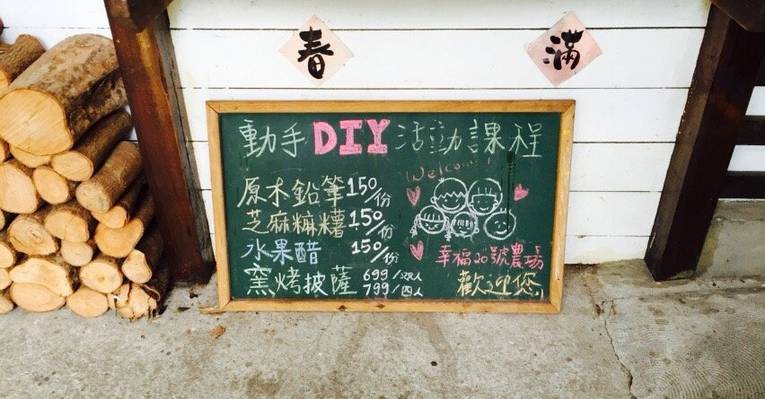 春
滿
動手DIY活動課程
Welcome!
原木鉛筆150/份
芝麻糍糬150/份
水果醋 150/份
窯烤披薩 699/2人
799/四人
幸福20號農場
歡迎您!